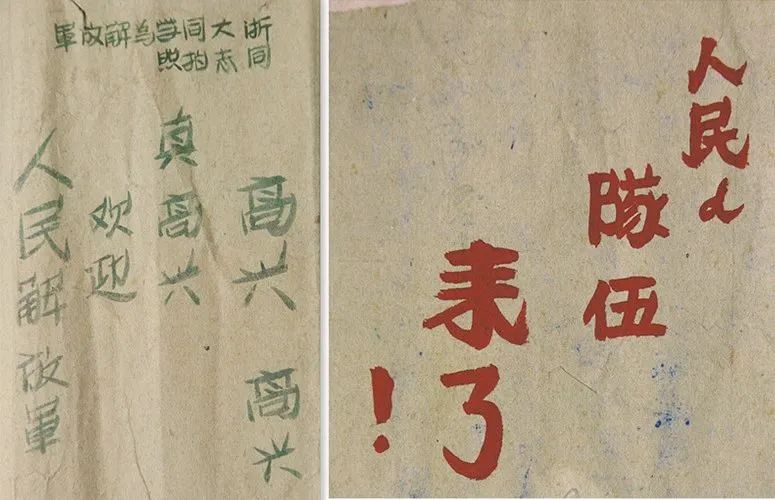 浙大同学为解放軍
同志拍照
高兴 高兴
真高兴
欢迎
人民解放軍
人民d
隊伍
来了
！